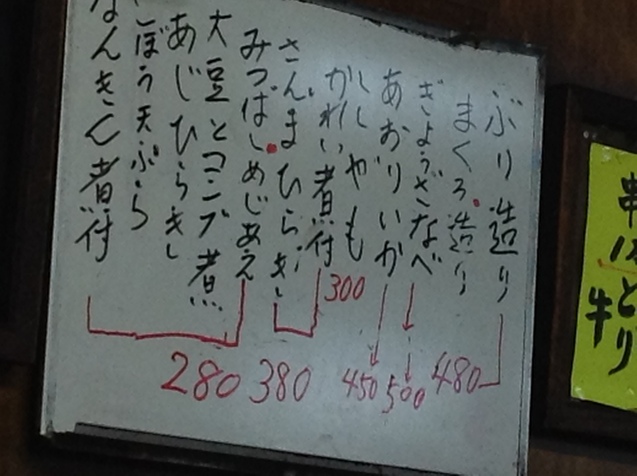 ぶり造り
まくろ造り
ぎょうざなべ
あおりいか
ししゃも
かれい煮付
さんまひらき
みつばしめじあえ
大豆とコンブ煮
あじひらき
ごぼう天ぷら
なんきん煮付
300
480
500
450
380
280
串
とり
牛